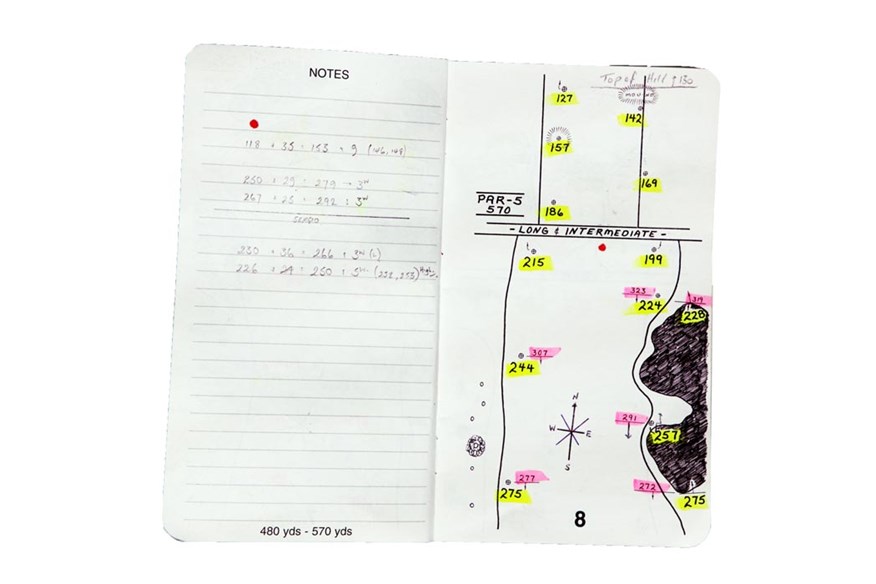 NOTES
118 + 35 = 153 = 9 (146, 148)
250 + 29 = 279 → 3ᵂ
267 + 25 = 292 = 3ᵂ
230 + 36 = 266 = 3ᵂ (L)
480 yds - 570 yds
Top of Hill ↑ 130
127
MOUND
142
157
169
186
PAR-5
570
- LONG & INTERMEDIATE -
215
199
323
224
319
228
307
244
291
257
N
W
E
S
277
275
272
275
8